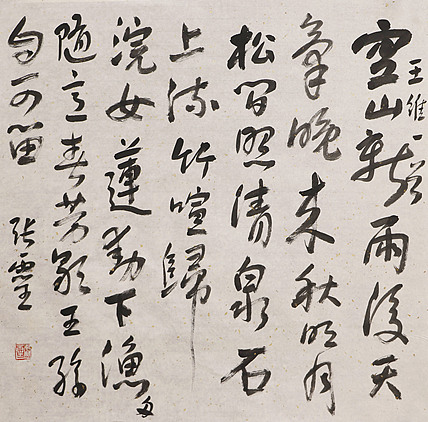 空山新雨後天
王維一首
氣晚来秋明月
松間照清泉石
上流竹喧歸
浣女蓮動下漁舟
隨意春芳歇王孫
自可留